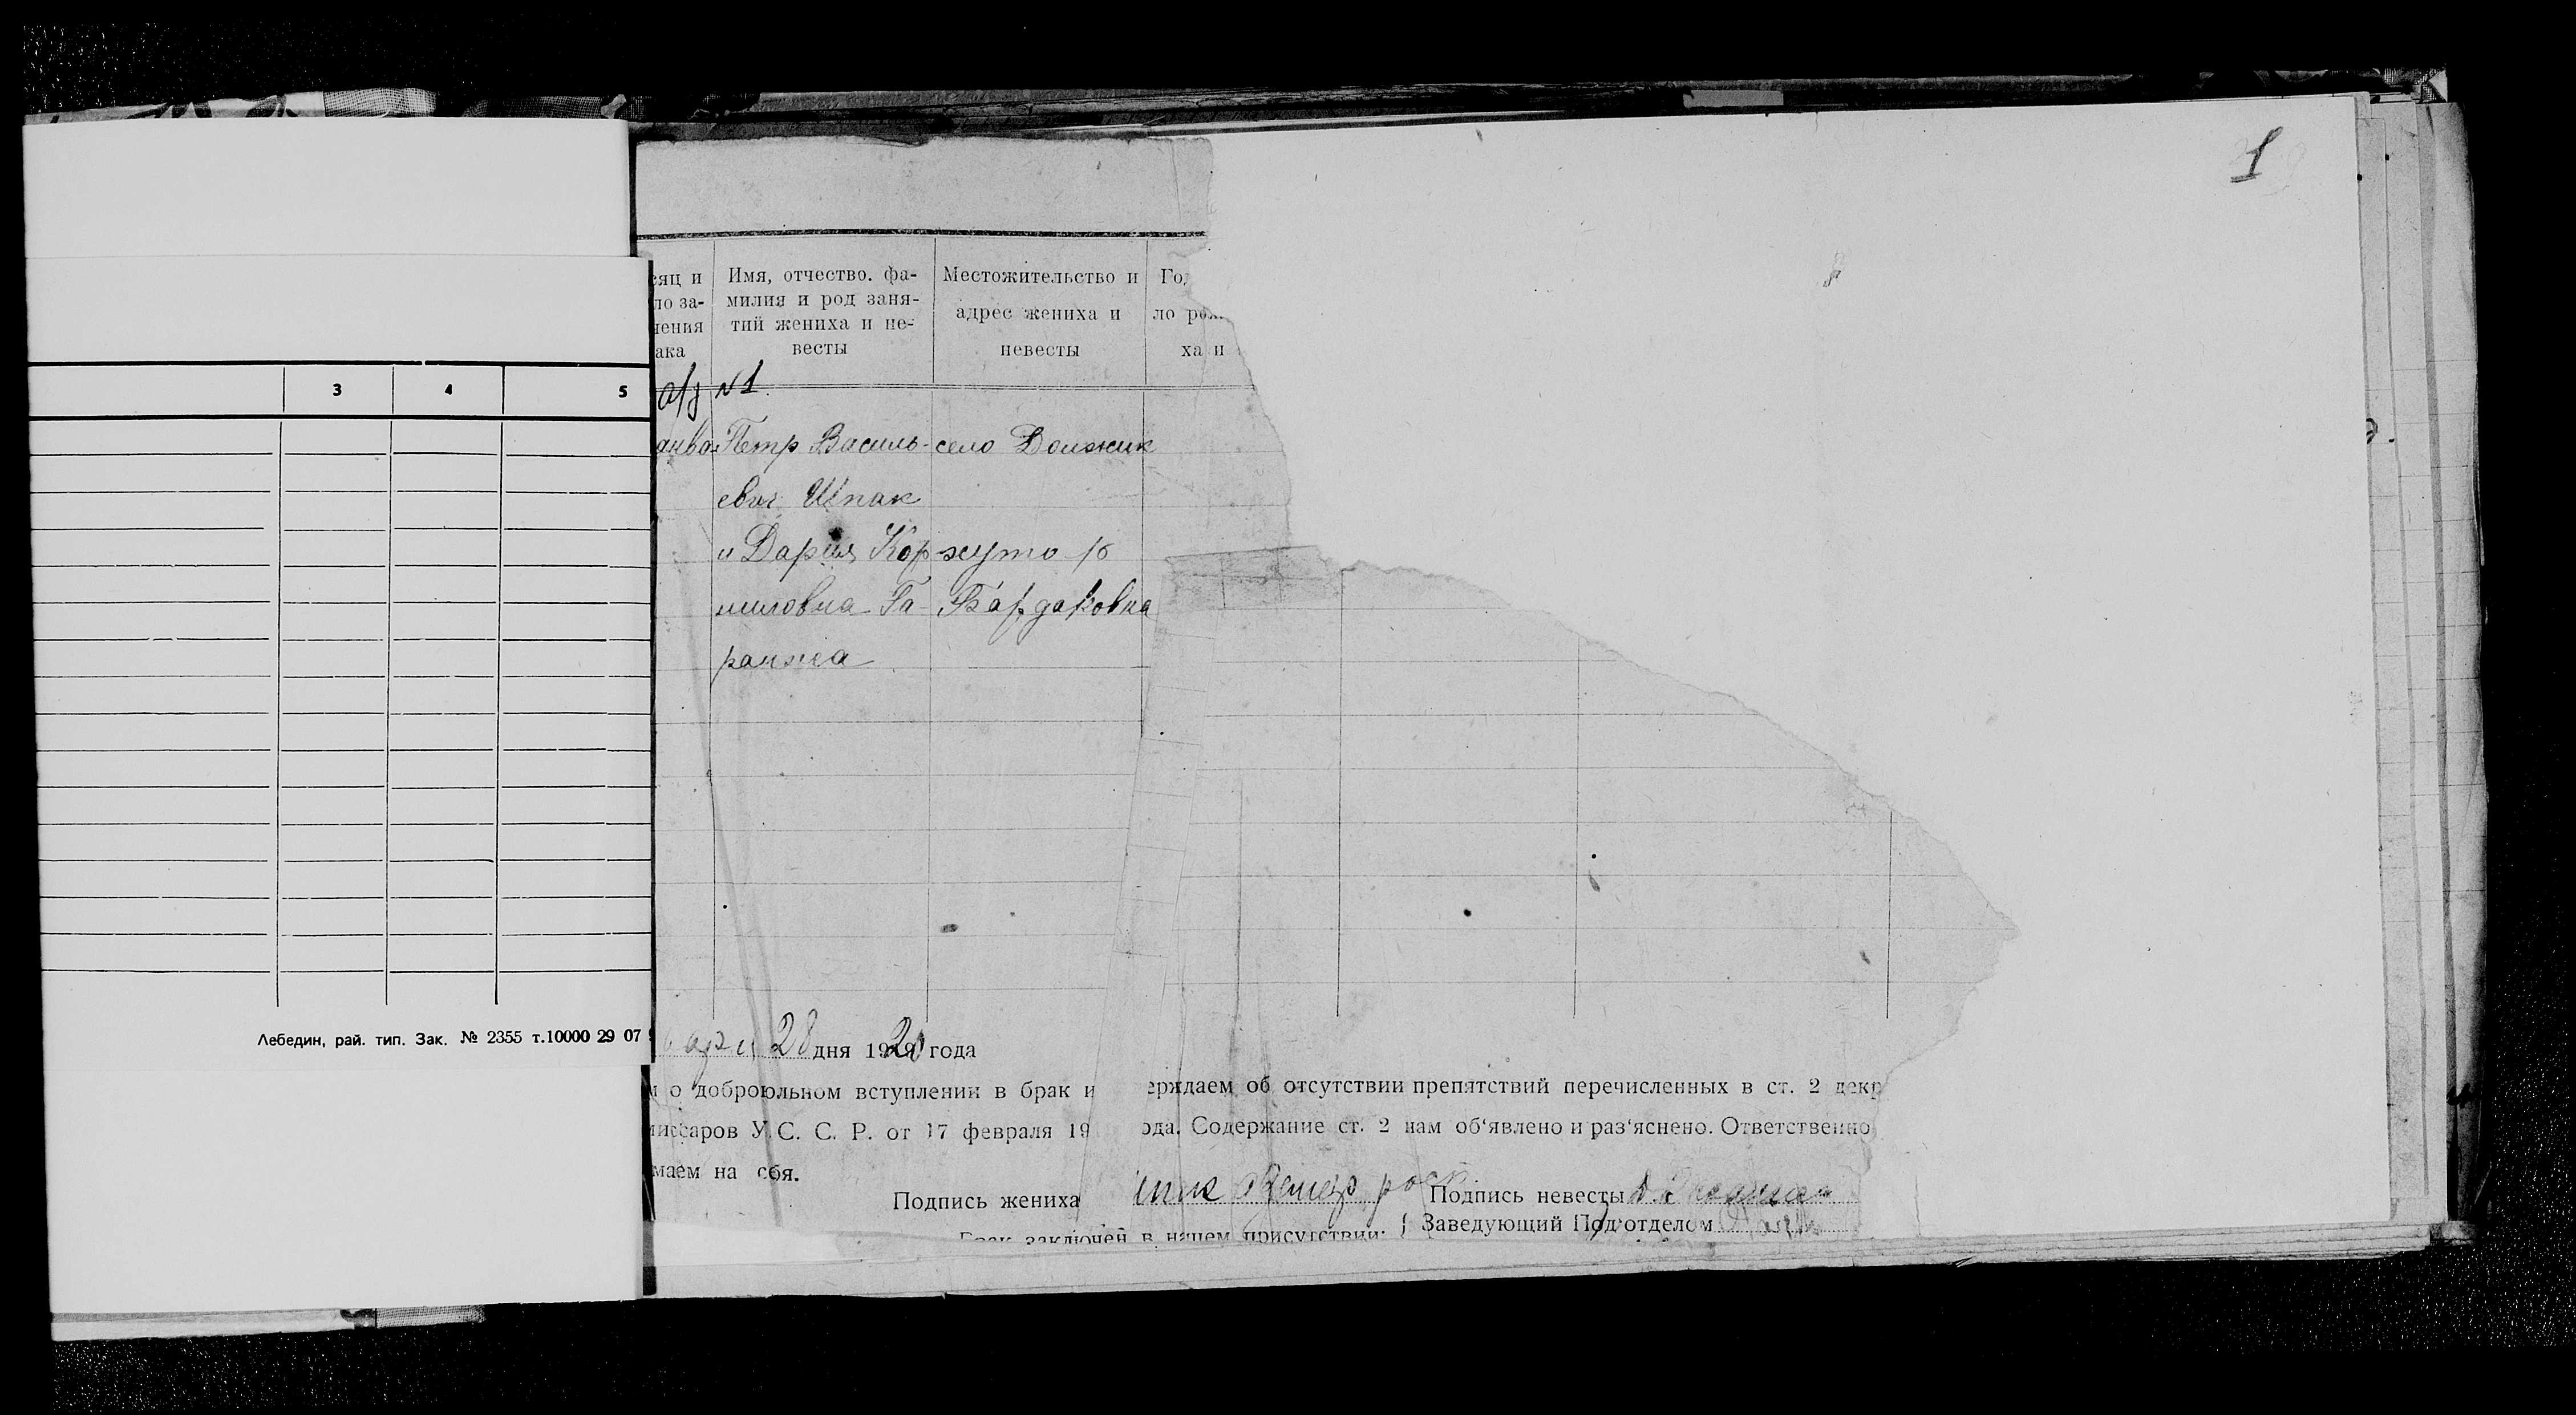 1
3 4 5
Лебедин, рай. тип. Зак. № 2355 т.10000 29 07
сяц и
ло за-
чения
ака
Имя, отчество. фа-
милия и род заня-
тий жениха и не-
весты
Местожительство и
адрес жениха и
невесты
Го
ло рож
ха и
а/з №1.
Петр Василь- село Должик
евич Шпак
и Дария Кор- хуто р
ниловна Га- Бардаковка
ранжа
варя 28 дня 1920 года
о доброюльном вступлении в брак и ерждаем об отсутствии препятствий перечисленных в ст. 2 декр
миссаров У. С. С. Р. от 17 февраля 19 ода. Содержание ст. 2 нам об‘явлено и раз‘яснено. Ответственно
маем на себя.
Подпись жениха Подпись невесты
Брак заключен в нашем присутствии: Заведующий Под‘отделом